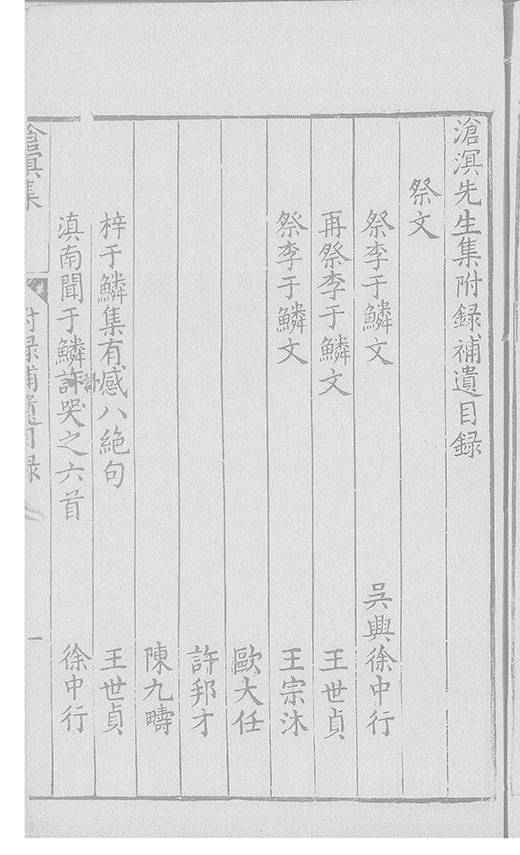 滄溟先生集附録補遺目録
祭文
祭李于鱗文 吳興徐中行
再祭李于鱗文 王世貞
祭李于鱗文 王宗沐
歐大任
許邦才
陳九疇
梓于鱗集有感八絶句 王世貞
滇南聞于鱗訃哭之六首 徐中行
滄溟集 附録補遺目録 一